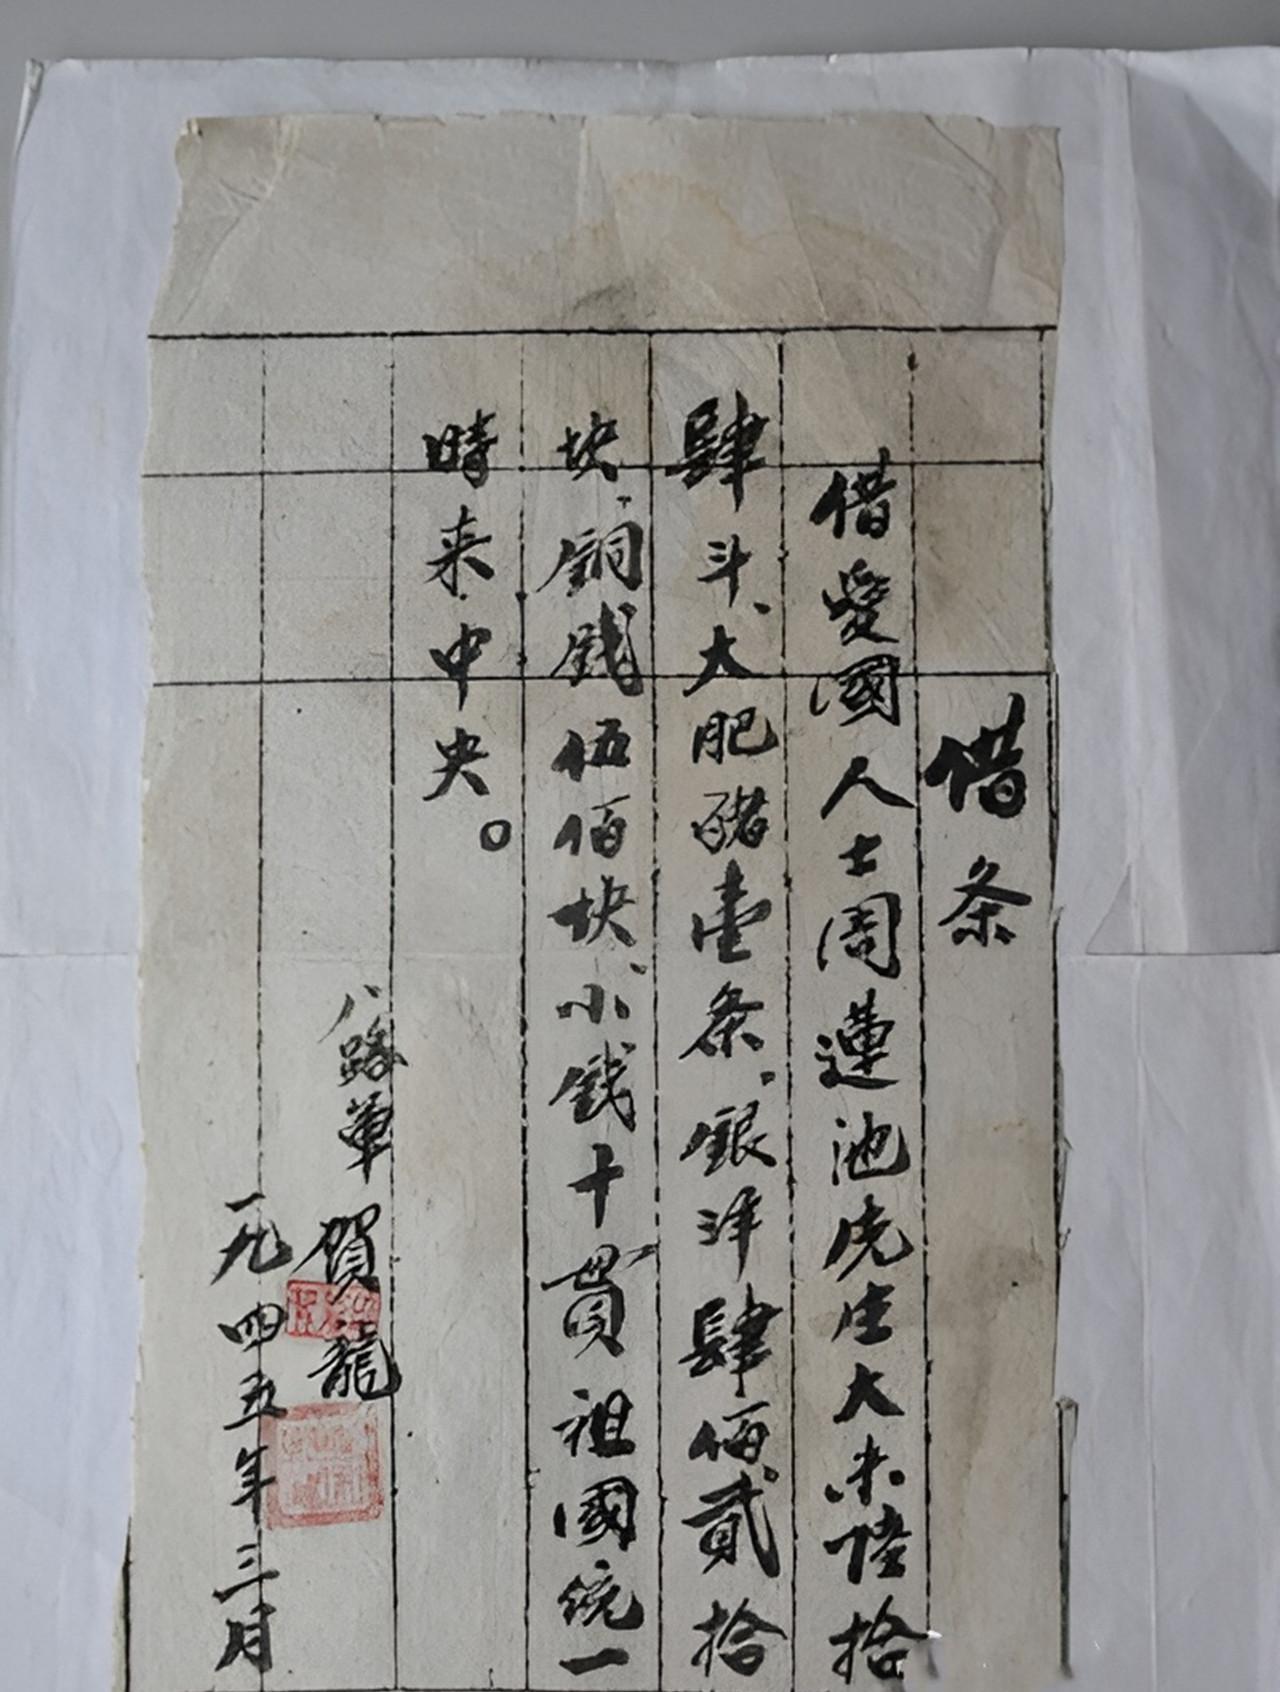 借条
借愛國人士周蓮池先生大米陸拾
肆斗、大肥豬壹条、銀洋肆佰貳拾
块、銅钱伍佰块、小钱十貫祖國统一
時来中央。
八路軍賀龍
一九四五年三月